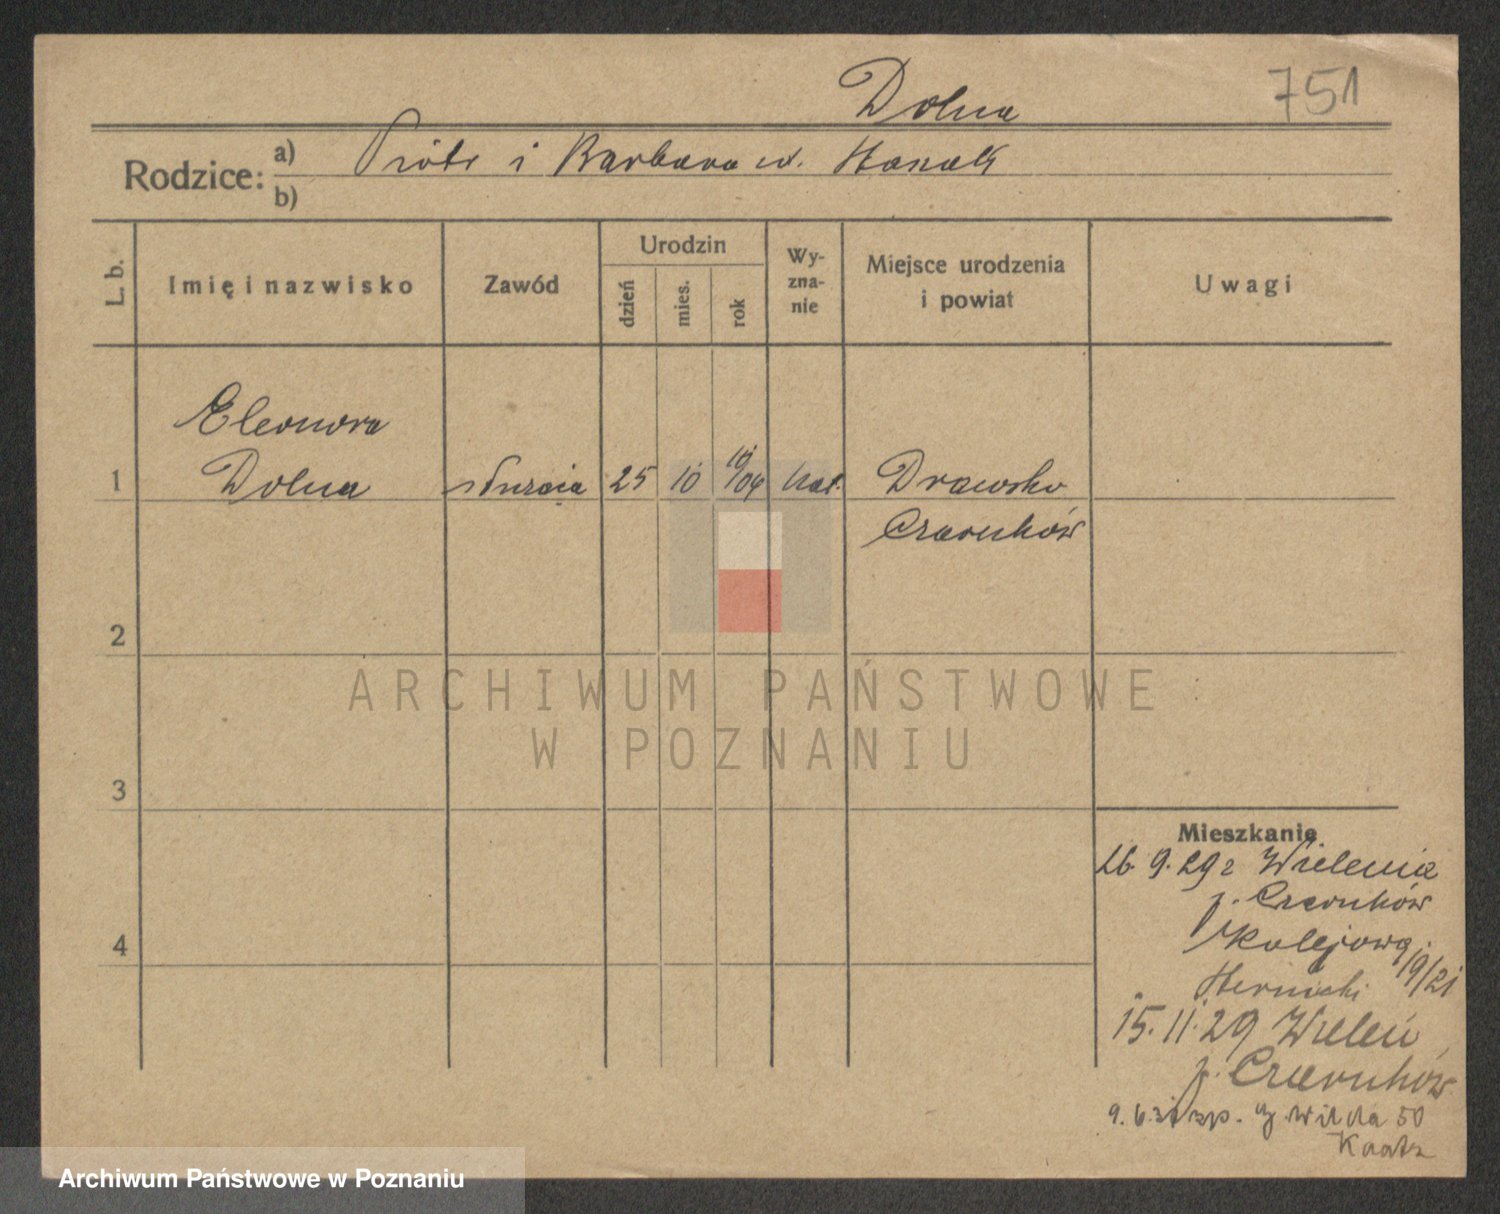 Dolna
751
Rodzice:
a) Piotr i Barbara w. Hanak
b)
L. b.
Imię i nazwisko
Zawód
Urodzin
dzień
mies.
rok
Wy-
zna-
nie
Miejsce urodzenia
i powiat
Uwagi
Eleonora
1 Dolna służąca 25 10 04 kat. Drawsko
Czarnków
2
ARCHIWUM PAŃSTWOWE
W POZNANIU
3
Mieszkanie
26. 9. 29 z Wielenia
p. Czarnków
Kolejowa
19/21
15. 11. 29 Wieleń
p. Czarnków
4
9. 6. 31 zp. G. Wilda 50
Kaatz
Archiwum Państwowe w Poznaniu